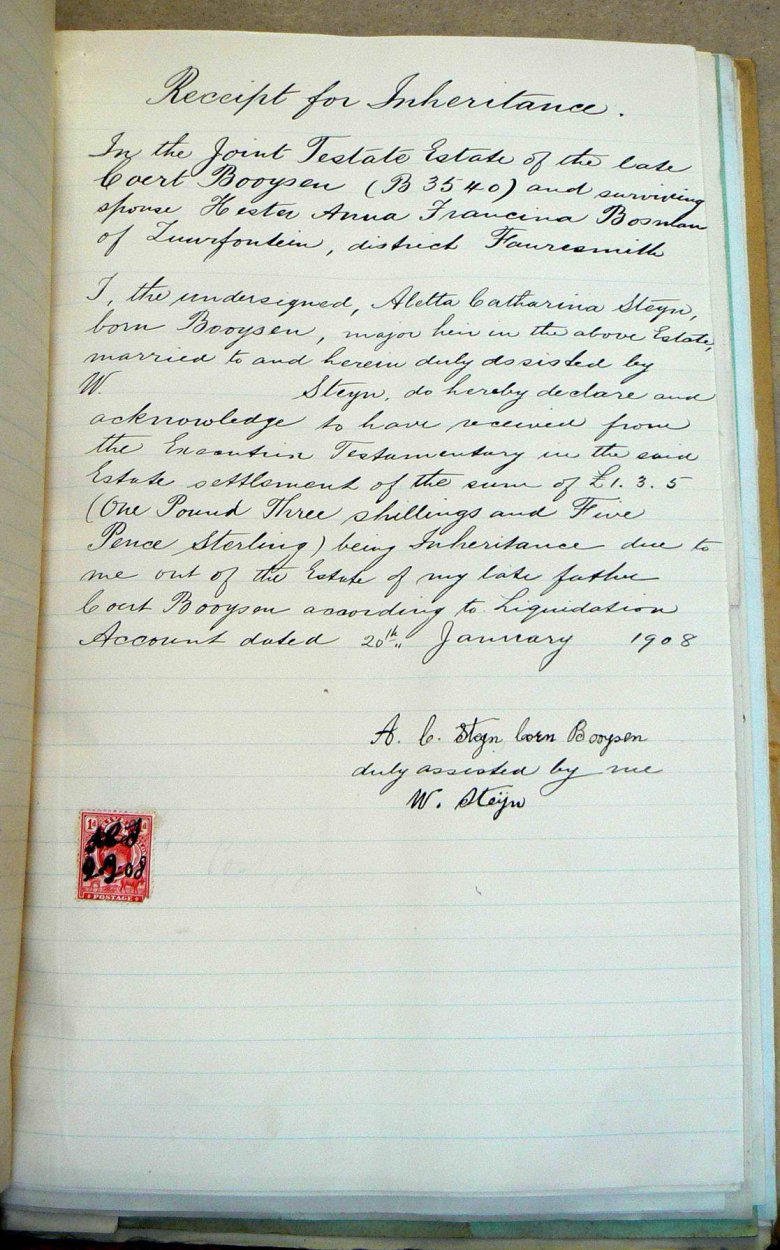 Receipt for Inheritance.
In the Joint Testate Estate of the late
Coert Booysen (B 3540) and surviving
spouse Hester Anna Francina Bosman
of Zuurfontein, district Fauresmith
I, the undersigned, Aletta Catharina Steyn,
born Booysen, major heir in the above Estate,
married to and herein duly assisted by
W. Steyn, do hereby declare and
acknowledge to have received from
the Executrix Testamentary in the said
Estate settlement of the sum of £1. 3. 5
(One Pound Three shillings and Five
Pence Sterling) being Inheritance due to
me out of the Estate of my late father
Coert Booysen according to Liquidation
Account dated 20th January 1908
A. C. Steyn born Booysen
duly assisted by me
W. Steijn
1d
POSTAGE